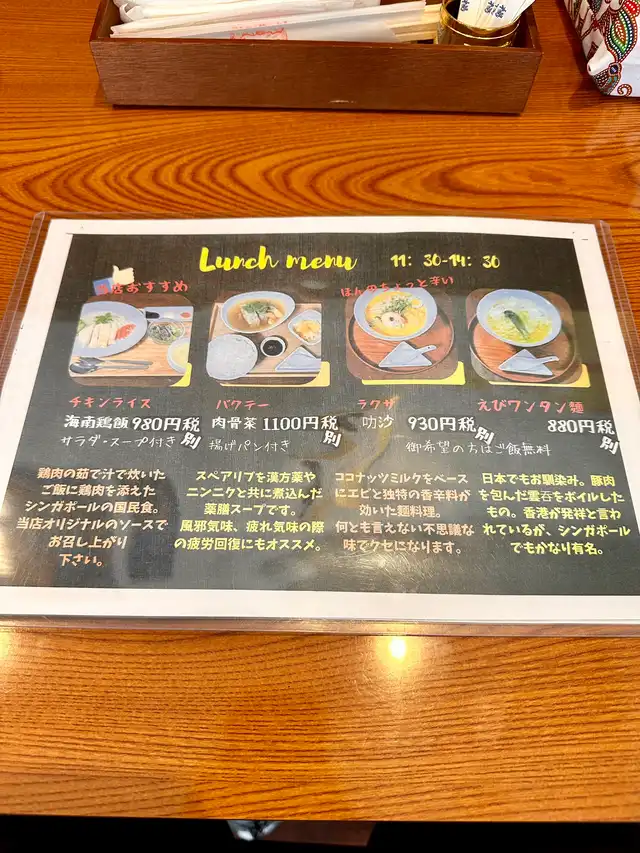 Lunch menu 11:30-14:30
当店おすすめ
ほんのちょっと辛い
チキンライス
海南鶏飯 980円税別
サラダ・スープ付き
バクテー
肉骨茶 1100円税別
揚げパン付き
ラクサ
叻沙 930円税別
えびワンタン麺
880円税別
御希望の方はご飯無料
鶏肉の茹で汁で炊いた
ご飯に鶏肉を添えた
シンガポールの国民食。
当店オリジナルのソースで
お召し上がり
下さい。
スペアリブを漢方薬や
ニンニクと共に煮込んだ
薬膳スープです。
風邪気味、疲れ気味の際
の疲労回復にもオススメ。
ココナッツミルクをベース
にエビと独特の香辛料が
効いた麺料理。
何とも言えない不思議な
味でクセになります。
日本でもお馴染み。豚肉
を包んだ雲呑をボイルした
もの。香港が発祥と言わ
れているが、シンガポール
でもかなり有名。